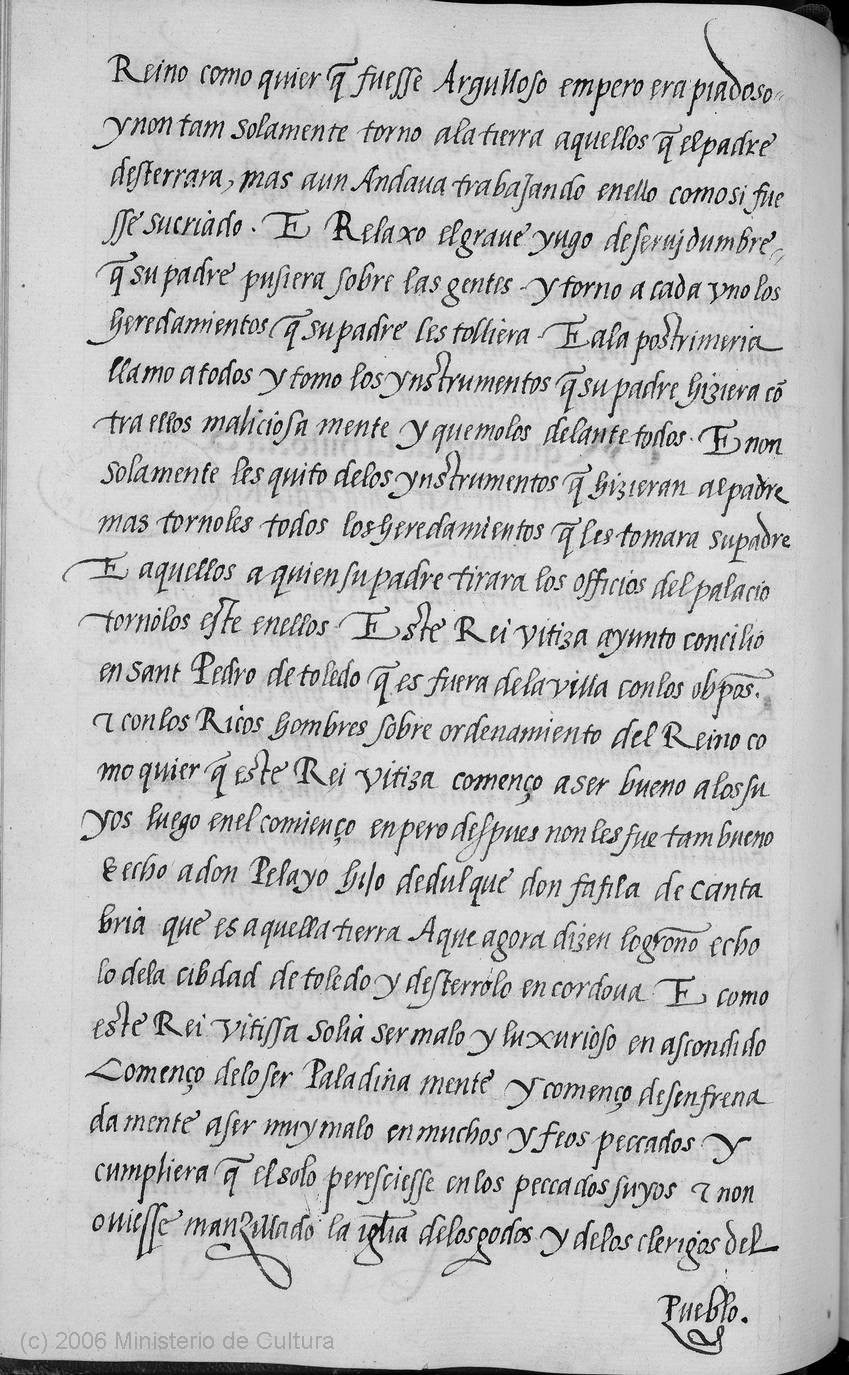 Reino como quier q̃ fuesse Argulloso empero era piadoso
y non tam solamente torno ala tierra aquellos q̃ el padre
desterrara, mas aun Andaua trabajando enello como si fue
sse su criado. E Relaxo el graue yugo de seruj dumbre
q̃ su padre pusiera sobre las gentes. y torno a cada vno los
heredamientos q̃ su padre les tolliera. E ala postrimeria
llamo a todos y tomo los ynstrumentos q̃ su padre hiziera cõ
tra ellos maliciosa mente y quemolos delante todos. E non
solamente les quito delos ynstrumentos q̃ hizieran al padre
mas tornoles todos los heredamientos q̃ les tomara su padre
E aquellos a quien su padre tirara los officios del palacio
tornolos este enellos. Este Rei vitiza ayunto concilio
en Sant Pedro de toledo q̃ es fuera dela villa con los obpõs.
& con los Ricos hombres sobre ordenamiento del Reino co
mo quier q̃ este Rei vitiza començo a ser bueno a los su
yos luego enel comienço enpero despues non les fue tam bueno
& echo a don Pelayo hijo de dulque don fafila de Canta
bria que es aquella tierra Aque agora dizen logroño echo
lo dela cibdad de toledo y desterrolo en cordoua. E como
este Rei vitissa solia ser malo y luxurioso en ascondido
Començo delo ser Paladina mente y començo desenfrena
da mente a ser muy malo en muchos y feos peccados y
cumpliera q̃ el solo peresciesse en los peccados suyos & non
ouiesse manzillado la iglia delos godos y delos clerigos del
Pueblo.
(c) 2006 Ministerio de Cultura